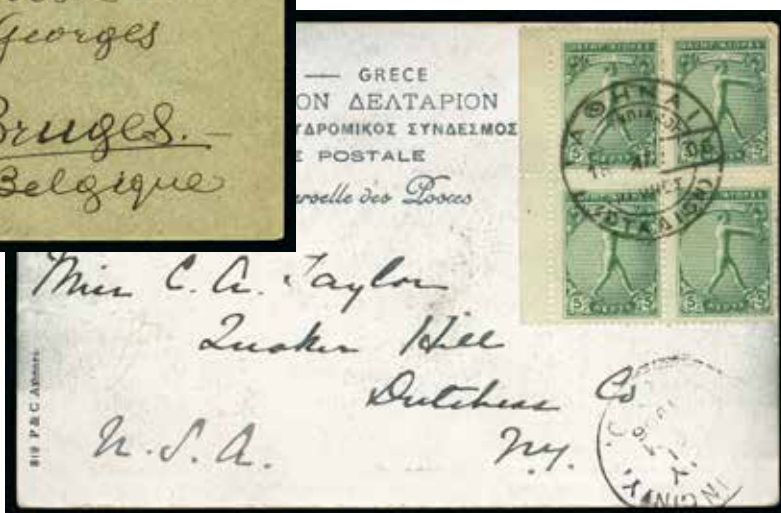 Georges
Bruges.-
Belgique
— GRECE
ΟΝ ΔΕΛΤΑΡΙΟΝ
ΥΔΡΟΜΙΚΟΣ ΣΥΝΔΕΣΜΟΣ
E POSTALE
erselle des Postes
ΑΘΗΝΑΙ
5 5
5 5
Miss C. A. Taylor
Quaker Hill
Dutchess Co
N.Y.
U.S.A.
819 P & C Athenes